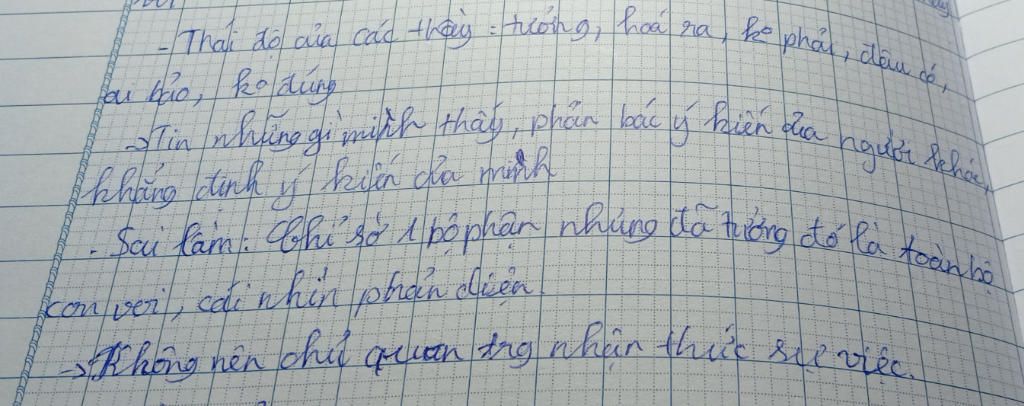 - Thái độ của các thầy: tưởng, hoá ra, ko phải, đâu có,
ai bảo, ko đúng
→ Tin những gì mình thấy, phản bác ý kiến của người khác,
khẳng định ý kiến của mình
- Sai lầm: Chỉ sờ 1 bộ phận nhưng đã tưởng đó là toàn bộ
con voi, cái nhìn phản diện
→ Không nên chủ quan trg nhận thức sự việc.